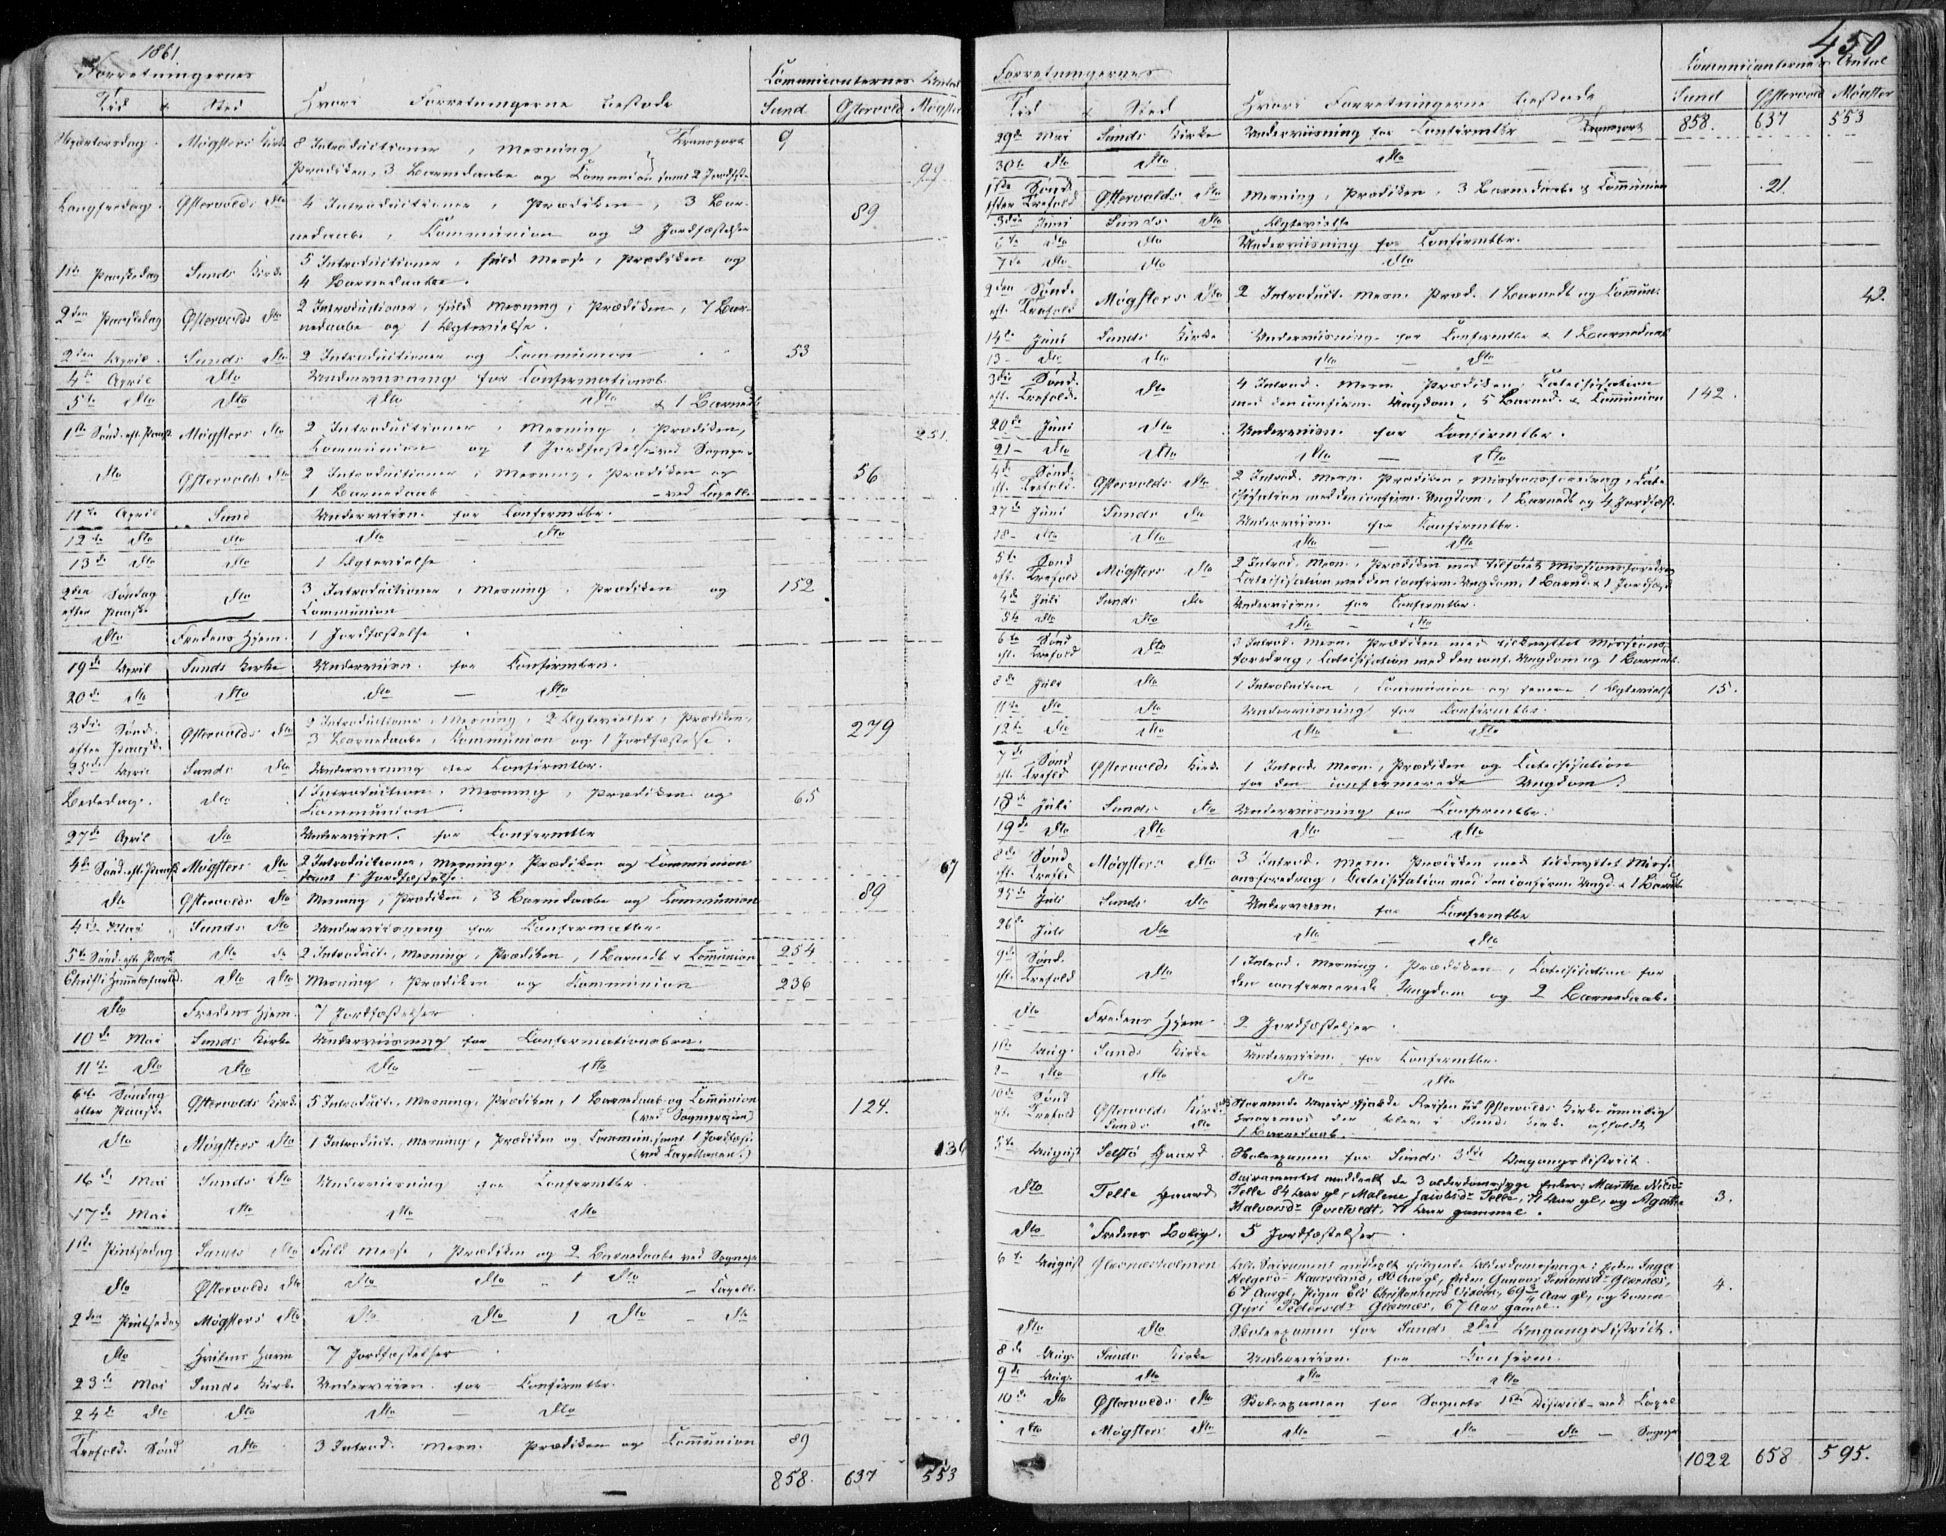 1861
Forretningernes
Communicanternes Antal
Tid & Sted
Hvori Forretningerne bestode
Sund Østervold Møgster
Skjærtorsdag. Møgsters Kirke 8 Introductioner, Messning, Transport 9
Prædiken, 3 Barnedaabe og Communion samt 2 Jordfæst. 99
Langfredag. Østervolds Dto 4 Introductioner, Prædiken, 3 Bar-
nedaabe, Communion og 2 Jordfæstelser 89
1ste Paaskedag Sunds Kirke 5 Introductioner, fuld Messe, Prædiken og
4 Barnedaabe.
2den Paaskedag Østervolds Dto 2 Introductioner, fuld Messning, Prædiken, 7 Bar-
nedaabe og 1 Ægtevielse.
2den April. Sunds Dto 2 Introductioner og Communion 53
4de April Dto Underviisning for Confirmationsb.
5te Dto Dto Dto Dto & 1 Barnedb
1ste Sønd. eft. Paaske Møgsters Dto 2 Introductioner, Messning, Prædiken,
Communion og 1 Jordfæstelse ved Sognepr. 251.
Dto Østervolds Dto 2 Introductioner, Messning, Prædiken og
1 Barnedaab – ved Capell. 56
11te April Sund Underviisn. for Confirmtbr.
12te Dto Dto Dto – Dto
13de Dto Dto 1 Ægtevielse
2den Søndag
efter Paaske Dto 3 Introductioner, Messning, Prædiken og
Communion 152
Dto Fredens Hjem. 1 Jordfæstelse
19de April Sunds Kirke Underviisn. for Confirmtbrn.
20de Dto Dto Dto – Dto
3die Sønd.
efter Paaske Østervolds Dto 2 Introductioner, Messning, 2 Ægtevielser, Prædiken,
3 Barnedaabe, Communion og 1 Jordfæstelse. 279
25de April Sunds Dto Underviisning for Confirmtbr.
Bededag. Dto 1 Introduction, Messning, Prædiken og
Communion. 65
27de April Dto Underviisn. for Confirmtbr
4de Sønd. eft. Paaske Møgsters Dto 2 Introductioner, Messning, Prædiken og Communion
samt 1 Jordfæstelse. 67
Dto Østervolds Dto Messning, Prædiken, 3 Barnedaabe og Communion 89
4de Mai Sunds Dto Underviisning for Confirmatbr.
5te Sønd. eft. Paaske Dto Do 2 Introduct., Messning, Prædiken, 1 Barnedb & Communion 254
Christi Himmelfartsd. Dto Dto Messning, Prædiken og Communion 236
Dto Fredens Hjem. 7 Jordfæstelser
10de Mai Sunds Kirke Underviisning for Confirmationsbrn.
11te Dto Dto Dto – Dto
6te Søndag
efter Paaske Østervolds Kirke 5 Introduct., Messning, Prædiken, 1 Barnedaab og Communion
(ved Sognepræsten) 124.
Dto Møgsters Dto 1 Introduct., Messning, Prædiken og Commun. samt 1 Jordfæst.
(ved Capellanen.) 136
16de Mai Sunds Dto Underviisning for Confirmtbr.
17de Mai Dto Dto – Dto
1ste Pintsedag Sunds Dto Fuld Messe, Prædiken og 2 Barnedaabe ved Sognepr
Dto Østervolds Dto Dto Dto 1 Dto – Capell.
2den Pintsedag Møgsters Dto Dto Dto 1 Dto – Dto
Dto Hvilens Havn 7 Jordfæstelser
23de Mai Sunds Kirke Underviisn. for Confirmtbr.
24de Dto Dto Dto – Dto
Trefold. Sønd Dto 3 Introd. Messn. Prædiken og Communion 89
858. 637 553

450
Forretningernes
Communicanternes Antal
Tid & Sted
Hvori Forretningerne bestode
Sund Østervold Møgster
29de Mai Sunds Kirke Underviisning for Confirmtbr Transport 858. 637 553
30te Dto Dto Dto
1ste Sønd.
efter Trefold Østervolds Dto Messning, Prædiken, 3 Barnedaabe & Communion 21
3die Juni Sunds Dto 1 Ægtevielse
6te Dto Dto Underviisning for Confirmtbr.
7de Dto Dto Dto
2den Sønd.
eft. Trefold Møgsters Dto 2 Introduct. Messn. Præd. 1 Barnedb og Commun. 42.
14de Juni Sunds Kirke Underviisning for Confirmtbr & 1 Barnedaab
13– Dto Dto Dto – Dto
3die Sønd.
eft. Trefold. Dto 4 Introd. Messn. Prædiken, Catechisation
med den confirm. Ungdom, 5 Barned. & Communion 142.
20de Juni Dto Underviisn. for Confirmtbr.
21– Dto Dto Dto – Dto
4de Sønd.
eft. Trefold. Østervolds Dto 2 Introd. Messn. Prædiken, Missionsforedrag, Cate-
chisation med den confirm. Ungdom, 1 Barnedb og 4 Jordfæst.
27de Juni Sunds Do Underviisn. for Confirmtbr.
18– Dto Dto Dto – Dto
5te Sønd
eft. Trefold Møgsters Dto 2 Introd. Messn., Prædiken med tilføiet Missionsforedrag
Catechisation med den confirm. Ungdom, 1 Barned. & 1 Jordfæst
4de Juli Sunds Do Underviisn. for Confirmtbr.
5te Dto Dto Dto – Dto
6te Sønd
eft. Trefold Dto 3 Introd. Messn. Prædiken med tilknyttet Missions
foredrag, Catechisation med den conf. Ungdom og 1 Barned.
8de Juli Dto 1 Introduction, Communion og senere 1 Ægtevielse 15.
11te Dto Dto Underviisning for Confirmtbr.
12te Dto Dto Dto – Dto
7de Sønd
eft. Trefold Østervolds Kirke 1 Introd. Messn., Prædiken og Catechisation
for den confirmerede Ungdom.
18de Juli Sunds Dto Underviisning for Confirmtbr.
19de Dto Dto Dto – Dto
8de Sønd
eft. Trefold Møgsters Dto 3 Introd. Messn. Prædiken med tilknyttet Missi-
onsforedrag, Catechisation med den confirm. Ungd. & 1 Barnedb
25de Juli Sunds Dto Underviisn. for Confirmtbr
26de Juli Dto Dto – Dto
9de Sønd.
eft. Trefold Dto 1 Introd. Messning, Prædiken, Catechisation for
den confirmerede Ungdom og 2 Barnedaab.
Dto Fredens Hjem. 2 Jordfæstelser.
1ste Aug. Sunds Kirke Underviisn. for Confirmtbr.
2– Dto Dto Dto – Dto
10de Sønd
eft. Trefold Østervolds Kirke Stormende Veir gjorde Reisen til Østervolds Kirke umulig
Sunds Dto hvorimod der blev i Sunds Kirke afholdt
1 Barnedaab.
5te August Selstø Gaard. Skoleexamen for Sunds 3die Omgangsdistrict
Dto Telle Gaard Sacramentet meddeelt de 3 alderdomssyge Enker: Marthe Nilsdr
Telle 84 Aar gl, Malene Jacobsdr Telle, 71 Aar gl, og Agathe
Halvorsdr Qvetvedt, 71 Aar gammel. 3.
Dto Fredens Bolig. 5 Jordfæstelser
6te August Glesnæsholmen Alt. Sacrament meddeelt følgende Alderdomssvage: Enken Inga
Helgesd. Kaarsland, 80 Aar gl, Enken Gunvor Simonsdr Glesnæs,
67 Aar gl, Pigen Eli Christophersd Vissøen, 69 3/4 Aar gl, og Konen
Gyri Pedersdr Glesnæs, 67 Aar gamel. 4.
Dto Dto Skoleexamen for Sunds 2det Omgangsdistrict.
8de Aug. Sunds Kirke Underviisn. for Confirm.
9de Aug. Dto Dto – Dto
10de Do Østervolds Dto Skoleexamen for Sognets 1ste District – ved Capel
Dto Møgsters Dto Dto – Dto – Dto – Sognepr
1022 658 595.